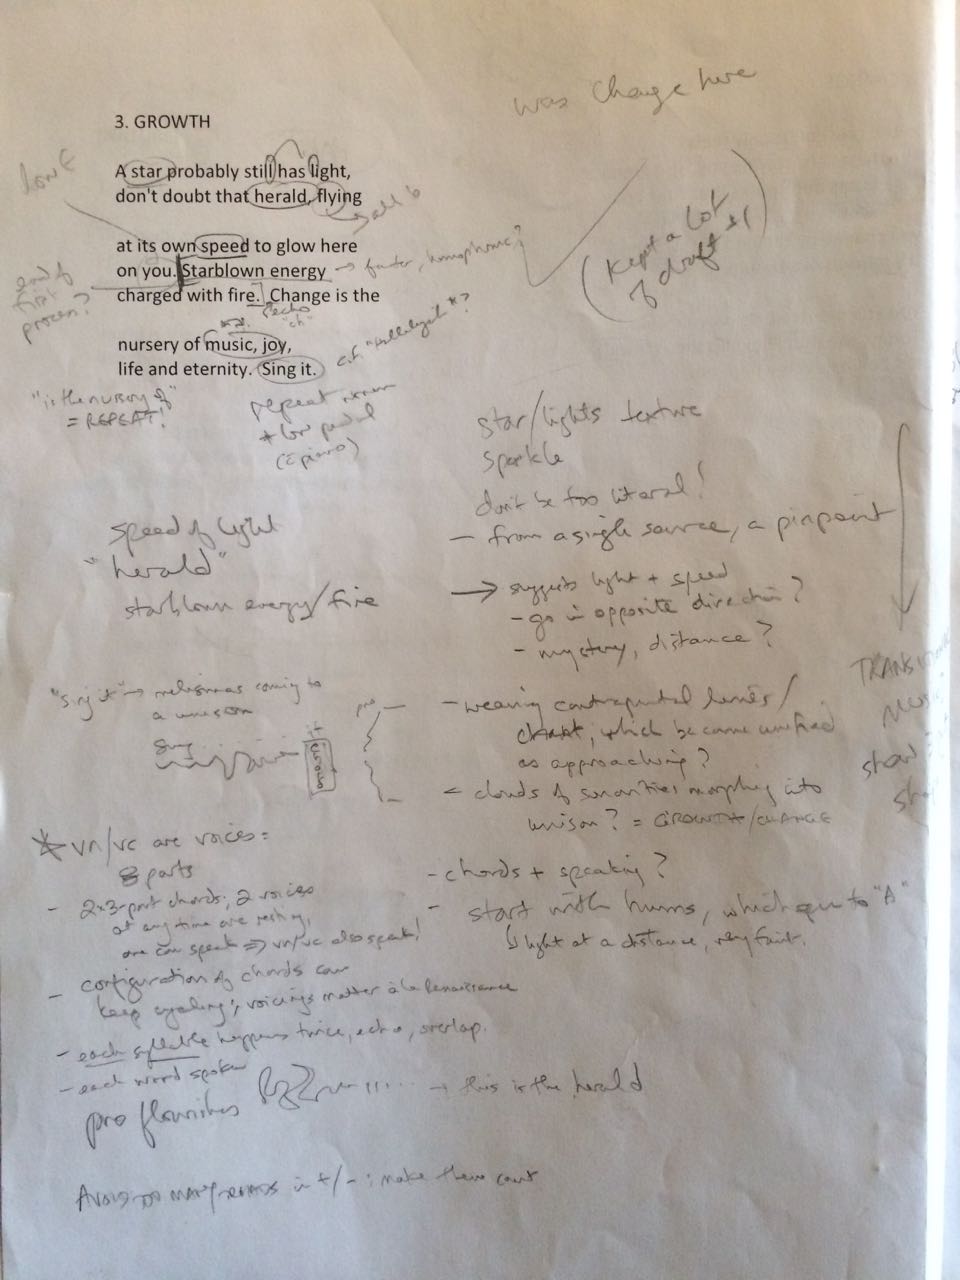 was change here
3. GROWTH
A star probably still has light,
don't doubt that herald, flying
at its own speed to glow here
on you. Starblown energy
charged with fire. Change is the
nursery of music, joy,
life and eternity. Sing it.
end of
first
faster, homophonic?
echo
"ch"
(kept a lot
of draft #1)
"is the nursery of"
= REPEAT!
repeat
+ low pedal
star/lights texture
sparkle
don't be too literal!
- from a single source, a pinpoint
speed of light
"herald"
starblown energy/fire
→ suggests light + speed
- go in opposite direction?
- mystery, distance?
"sing it" → melismas coming to
a unison
Sing
it
pno
- weaving contrapuntal lines/
chant, which become unified
as approaching?
- clouds of sonorities morphing into
unison? = GROWTH/CHANGE
* vn/vc are voices:
8 parts
- 2x3-part chords; 2 voices
at any time are resting,
one can speak ⇒ vn/vc also speak!
- configuration of chords can
keep cycling; voicings matter à la Renaissance
- each syllable happens twice, echo, overlap.
- each word spoken
pno flourishes → this is the herald
- chords + speaking?
- start with hums, which open to "A"
↳ light at a distance, very faint.
in +/- : make them count